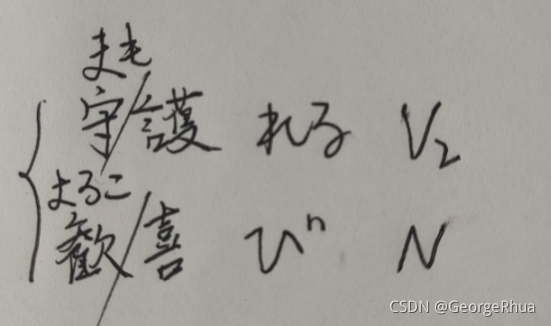 まも
守/護 れる V2
よろこ
歓/喜 び" N
CSDN @GeorgeRhua